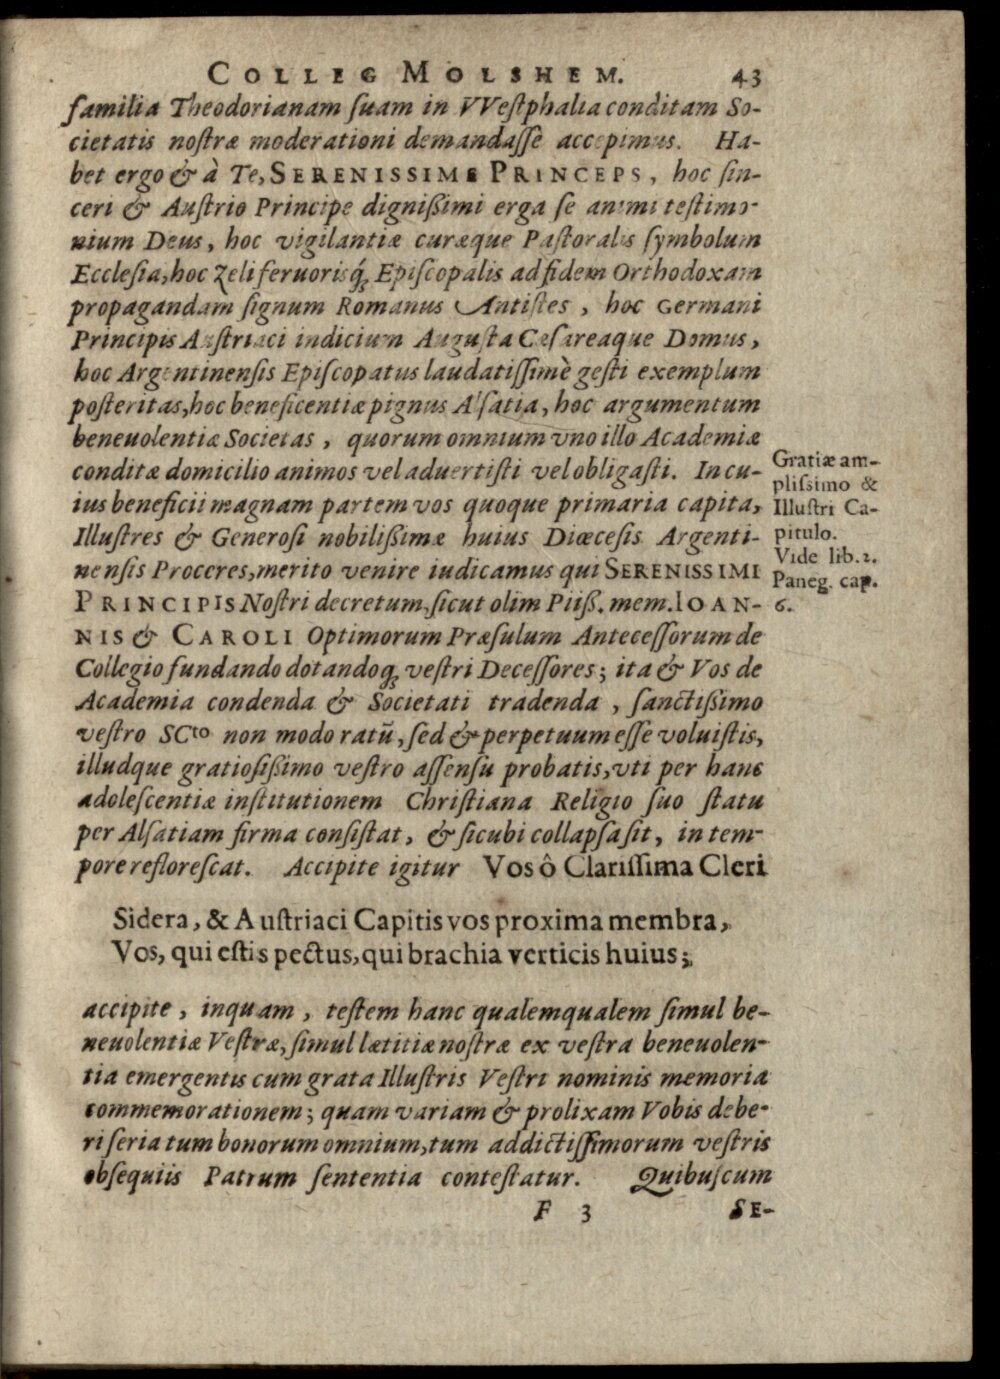 COLLEG MOLSHEM. 43
familia Theodorianam ſuam in VVeſtphalia conditam So-
cietatis noſtræ moderationi demandaſſe accepimus. Ha-
bet ergo & à Te, SERENISSIME PRINCEPS, hoc ſin-
ceri & Auſtrio Principe digniſſimi erga ſe animi teſtimo-
nium Deus, hoc vigilantiæ curæque Paſtoralis ſymbolum
Eccleſia, hoc zeli feruorisq́; Epiſcopalis ad fidem Orthodoxam
propagandam ſignum Romanus Antiſtes, hoc Germani
Principis Auſtriaci indicium Auguſta Cæſareaque Domus,
hoc Argentinenſis Epiſcopatus laudatiſſimè geſti exemplum
poſteritas, hoc beneficentiæ pignus Alſatia, hoc argumentum
beneuolentiæ Societas, quorum omnium vno illo Academiæ
conditæ domicilio animos vel aduertiſti vel obligaſti. In cu-
ius beneficii magnam partem vos quoque primaria capita,
Illuſtres & Generoſi nobiliſſimæ huius Diœceſis Argenti-
nenſis Proceres, merito venire iudicamus qui SERENISSIMI
PRINCIPIS Noſtri decretum, ſicut olim Piiß. mem. IOAN-
NIS & CAROLI Optimorum Præſulum Anteceſſorum de
Collegio fundando dotandoq́; veſtri Deceſſores; ita & Vos de
Academia condenda & Societati tradenda, ſanctiſſimo
veſtro SCto non modo ratũ, ſed & perpetuum eſſe voluiſtis,
illudque gratioſiſſimo veſtro aſſenſu probatis, vti per hanc
adoleſcentiæ inſtitutionem Chriſtiana Religio ſuo ſtatu
per Alſatiam firma conſiſtat, & ſicubi collapſa ſit, in tem-
pore refloreſcat. Accipite igitur Vos ô Clariſſima Cleri
Sidera, & Auſtriaci Capitis vos proxima membra,
Vos, qui eſtis pectus, qui brachia verticis huius;
accipite, inquam, teſtem hanc qualemqualem ſimul be-
neuolentiæ Veſtræ, ſimul lætitiæ noſtræ ex veſtra beneuolen-
tia emergentis cum grata Illuſtris Veſtri nominis memoria
commemorationem; quam variam & prolixam Vobis debe-
ri ſeria tum bonorum omnium, tum addictiſſimorum veſtris
obſequiis Patrum ſententia conteſtatur. Quibuſcum
F 3 SE-
Gratiæ am-
pliſsimo &
Illuſtri Ca-
pitulo.
Vide lib. 2.
Paneg. cap.
6.